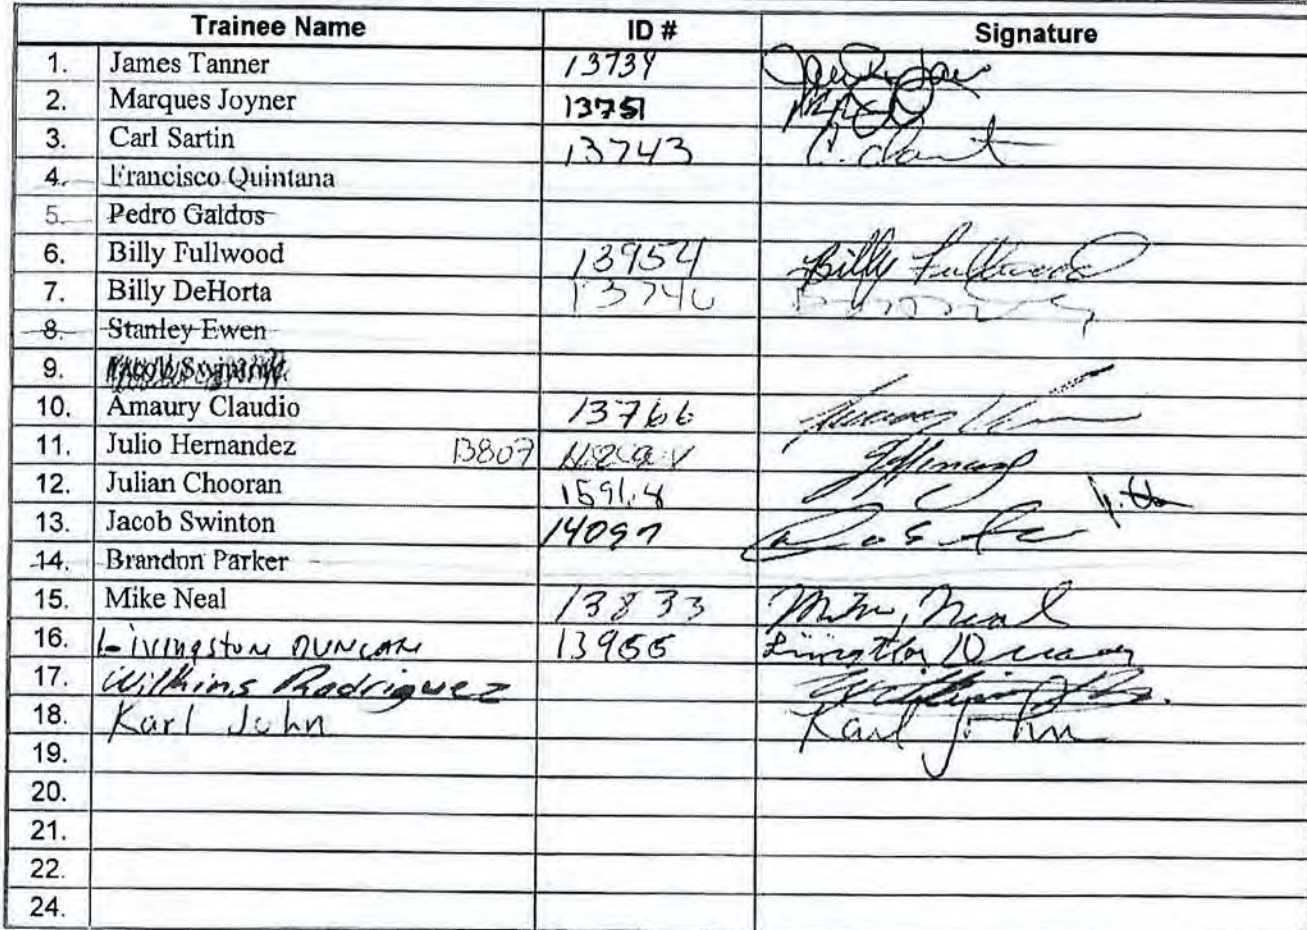 Trainee Name ID # Signature
1. James Tanner 13739
2. Marques Joyner 13751
3. Carl Sartin 13743
4. Francisco Quintana
5. Pedro Galdos
6. Billy Fullwood 13954 Billy Fullwood
7. Billy DeHorta 13746
8. Stanley Ewen
9.
10. Amaury Claudio 13766
11. Julio Hernandez 13807
12. Julian Chooran
13. Jacob Swinton 14097
14. Brandon Parker
15. Mike Neal 13833 Mike Neal
16. Livingston DUNCAN 13955 Livingston Duncan
17. Wilkins Rodriguez
18. Karl John Karl John
19.
20.
21.
22.
24.